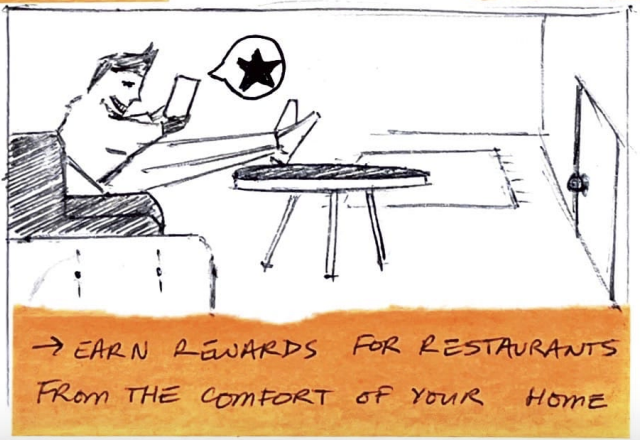 → EARN REWARDS FOR RESTAURANTS
FROM THE COMFORT OF YOUR HOME